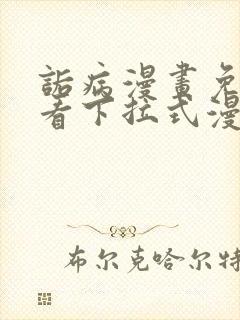 詬病漫畫免
看下拉式漫
布尔克哈尔特